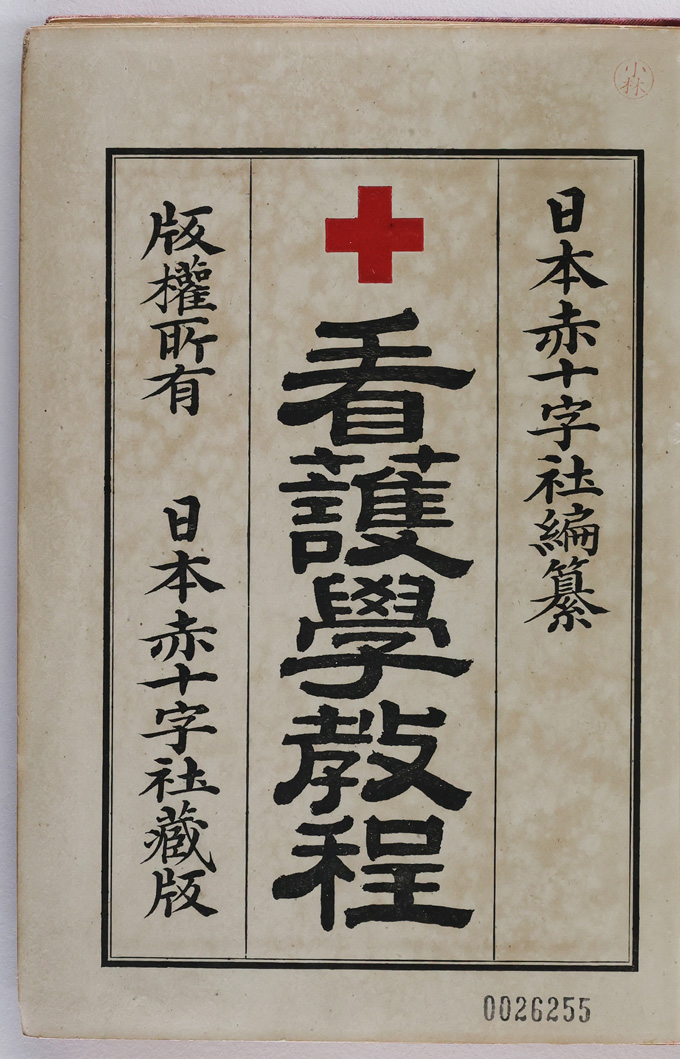 小林
日本赤十字社編纂
看護學教程
版權所有 日本赤十字社藏版
0026255